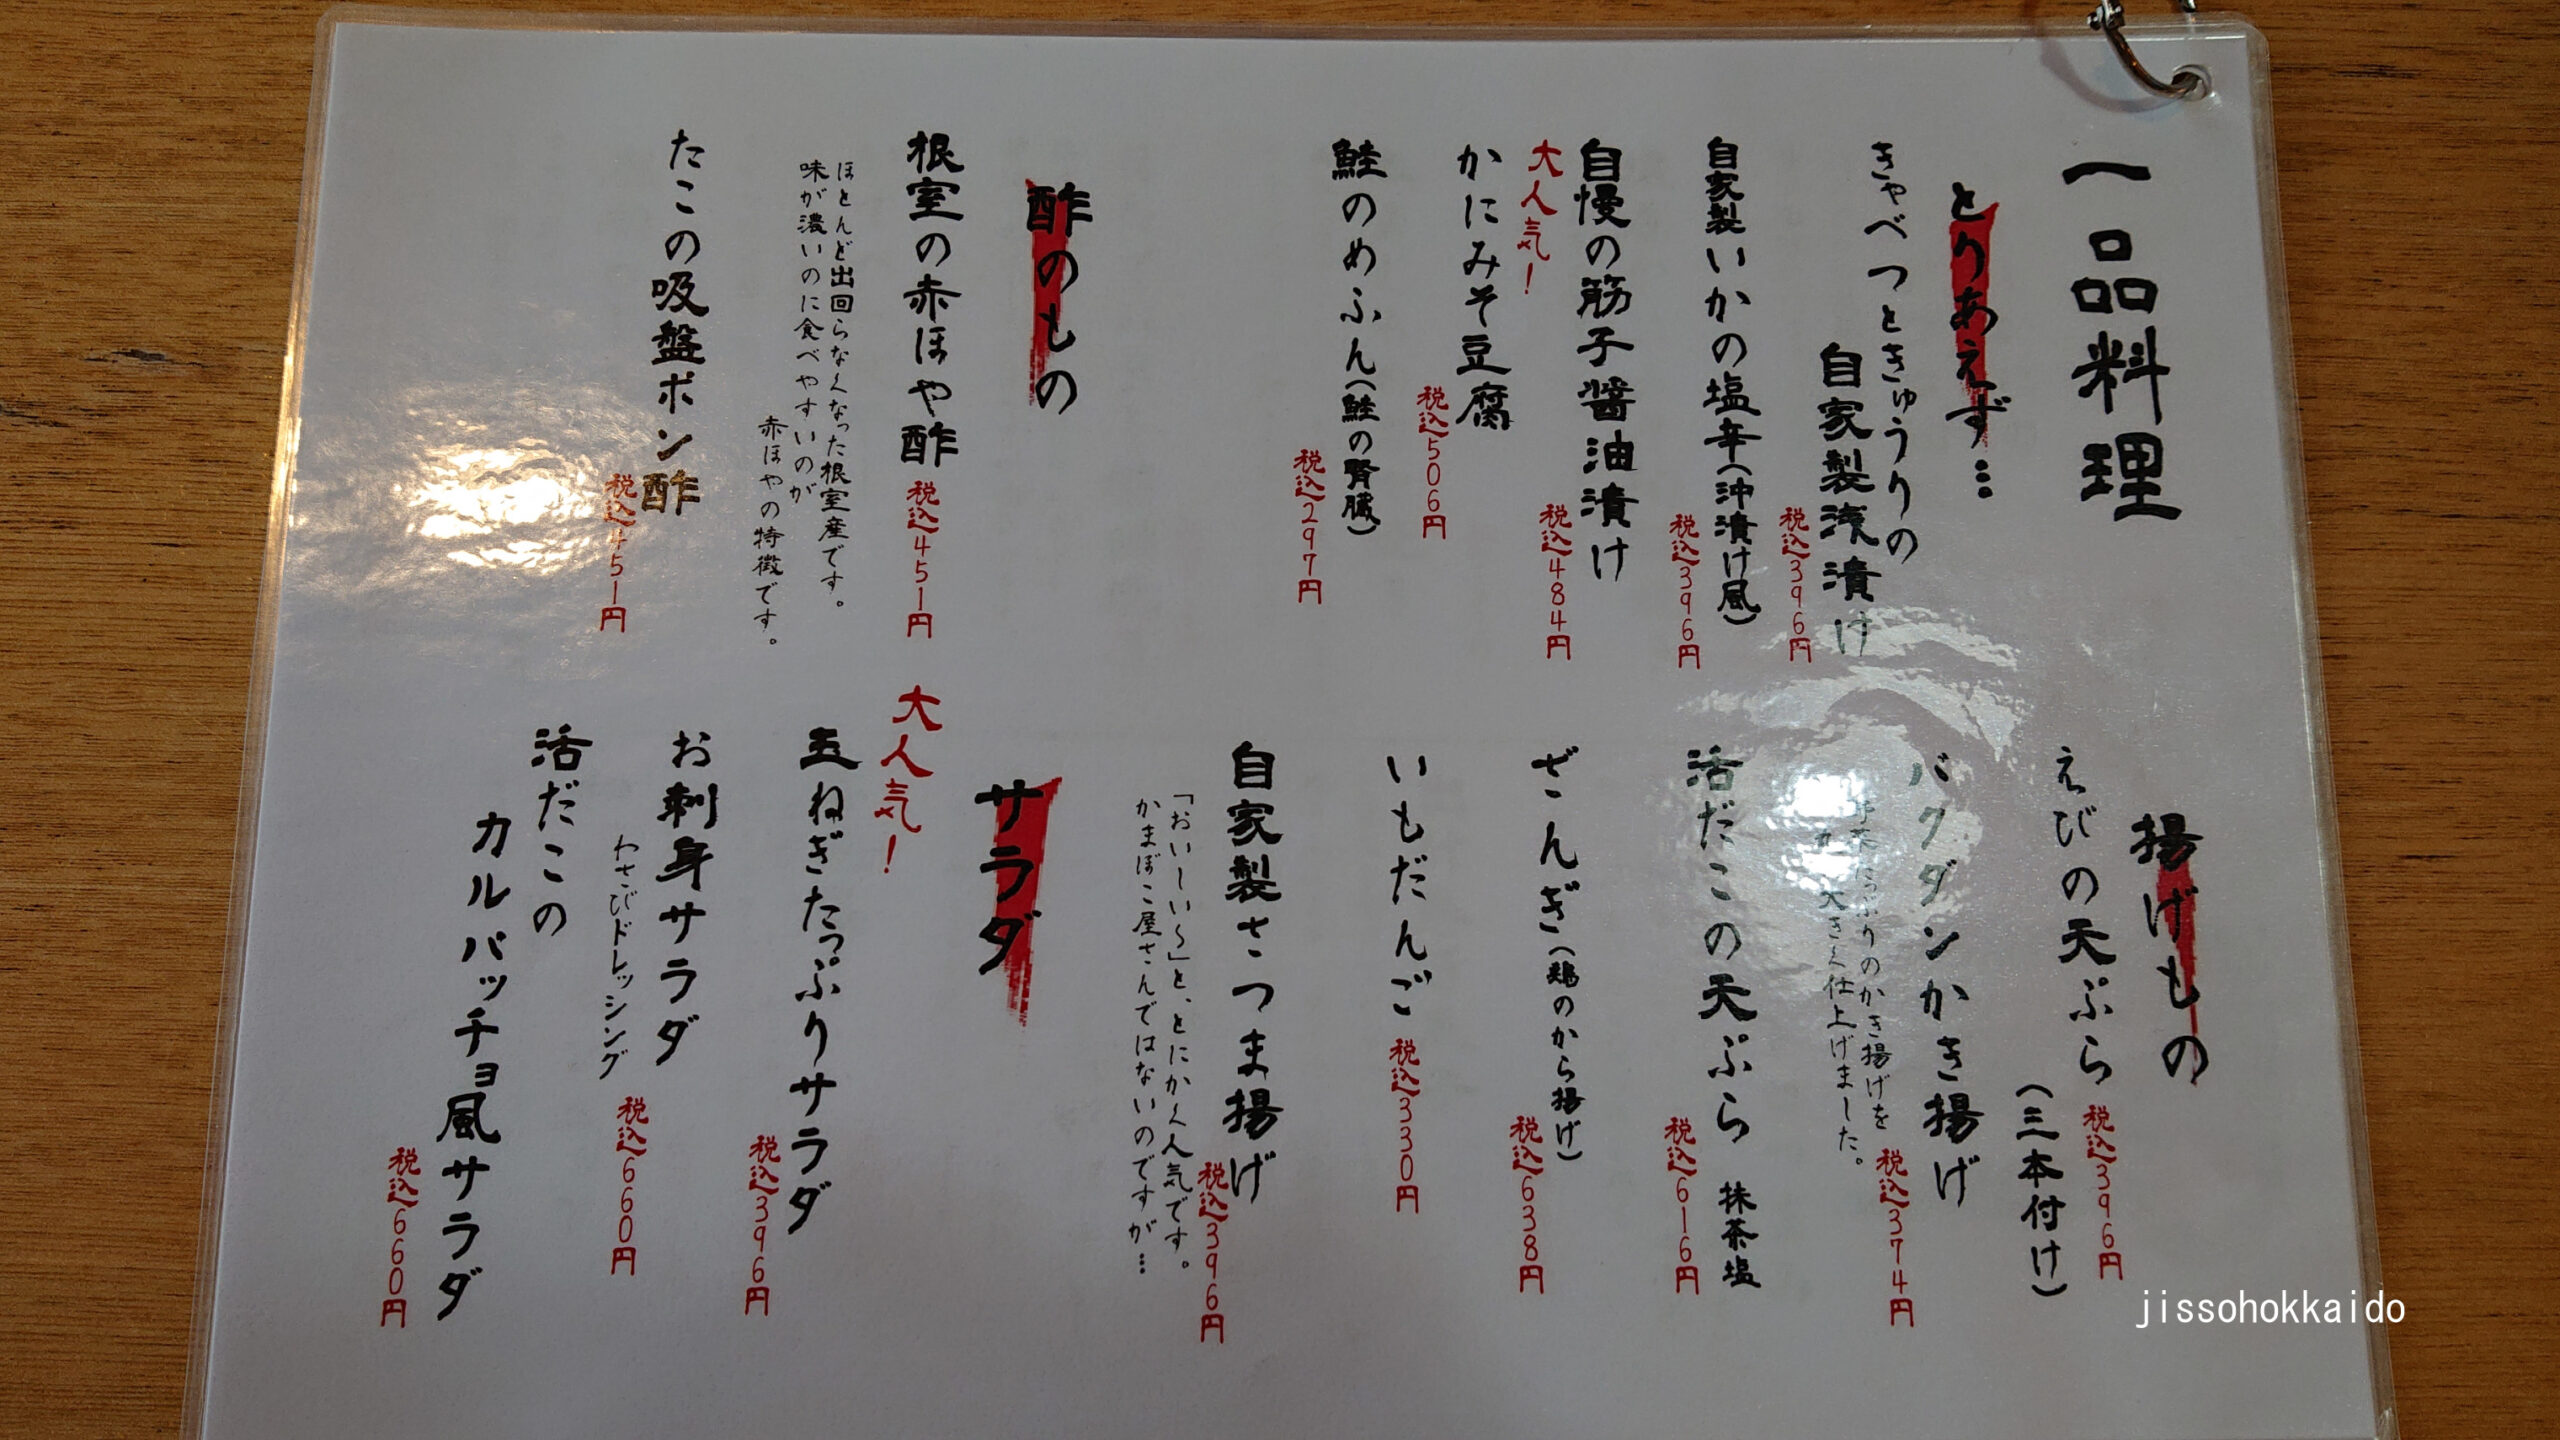 一品料理
とりあえず…
きゃべつときゅうりの
自家製浅漬け
税込396円
自家製いかの塩辛(沖漬け風)
税込396円
自慢の筋子醤油漬け
税込484円
大人気！
かにみそ豆腐
税込506円
鮭のめふん(鮭の腎臓)
税込297円
酢のもの
根室の赤ほや酢
税込451円
ほとんど出回らなくなった根室産です。
味が濃いのに食べやすいのが
赤ほやの特徴です。
たこの吸盤ポン酢
税込451円
揚げもの
えびの天ぷら
(三本付け)
税込396円
バクダンかき揚げ
たっぷりのかき揚げを
大きく仕上げました。
税込374円
活だこの天ぷら 抹茶塩
税込616円
ざんぎ(鶏のから揚げ)
税込638円
いもだんご
税込330円
自家製さつま揚げ
税込396円
「おいしい〜」と、とにかく人気です。
かまぼこ屋さんではないのですが…
サラダ
大人気！
玉ねぎたっぷりサラダ
税込396円
お刺身サラダ
わさびドレッシング
税込660円
活だこの
カルパッチョ風サラダ
税込660円
jissohokkaido